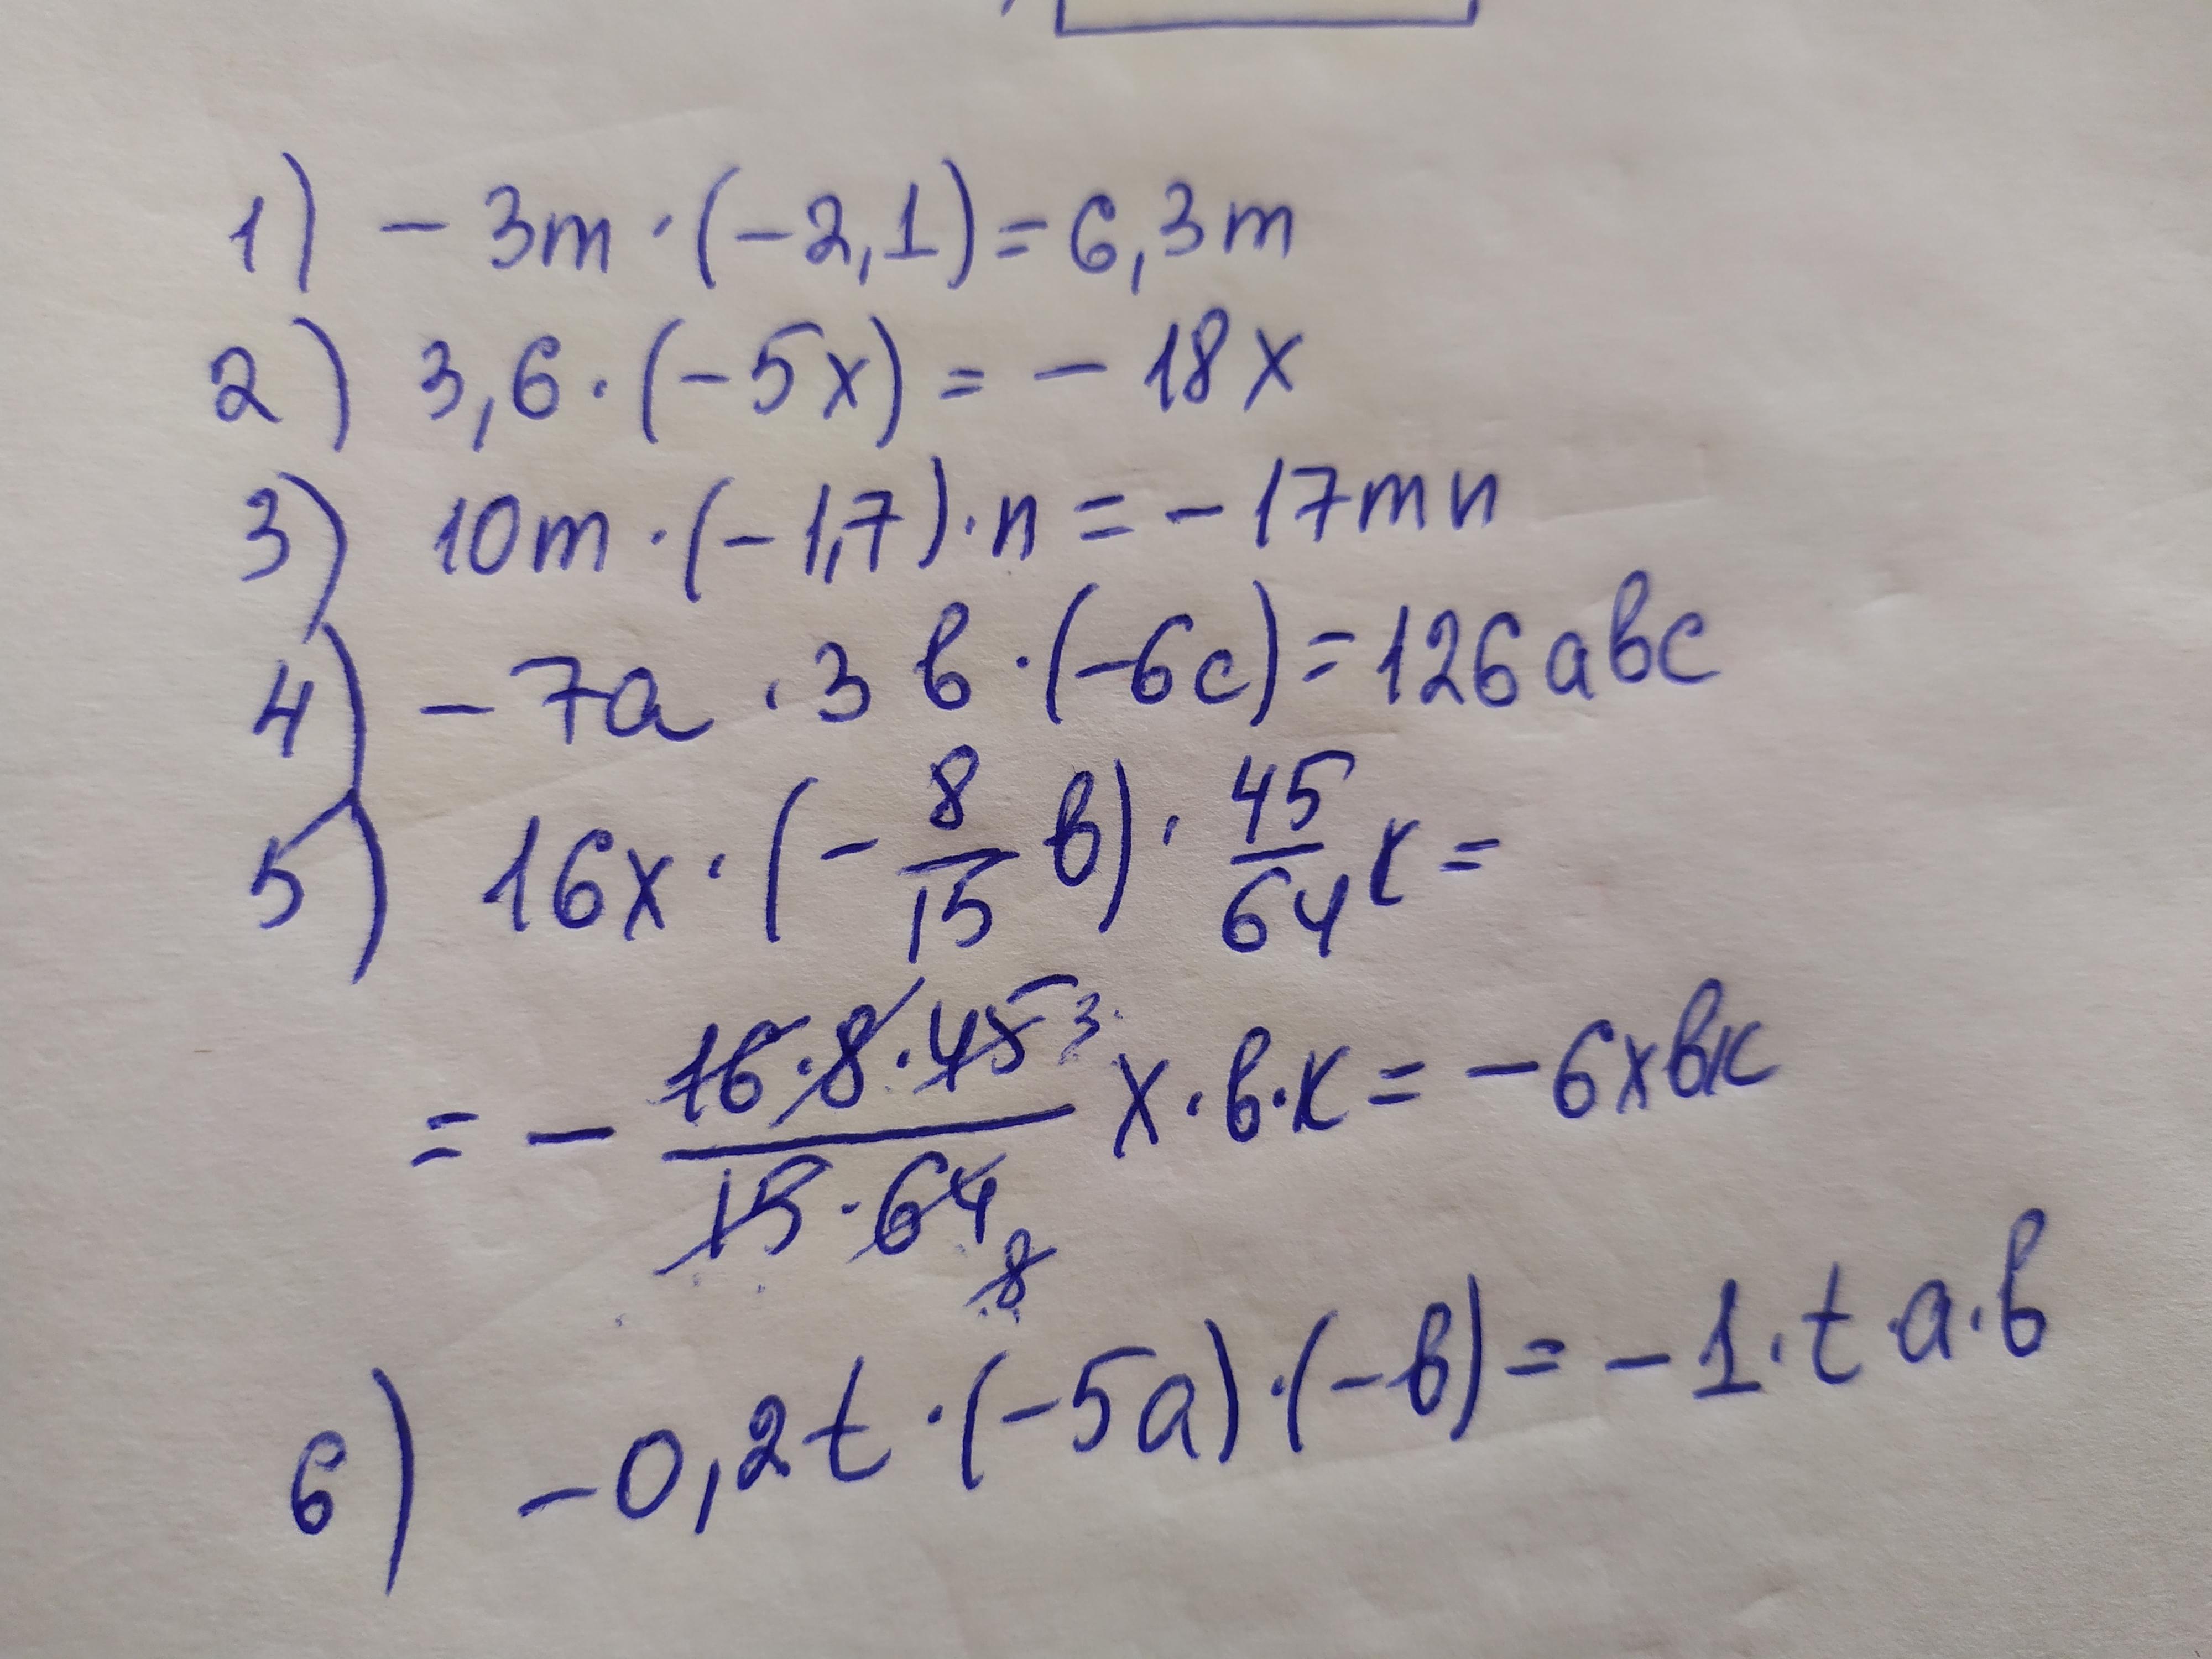 1) - 3m · (-2,1) = 6,3m
2) 3,6 · (-5x) = - 18x
3) 10m · (-1,7) · n = - 17mn
4) - 7a · 3 в · (-6c) = 126 aвc
5) 16x · (- 8/15 в) · 45/64 к =
= - 16·8·45 3 / 15·64 8 x · в · к = - 6xвк
6) -0,2t · (-5a) · (-в) = - 1 · t · a · в